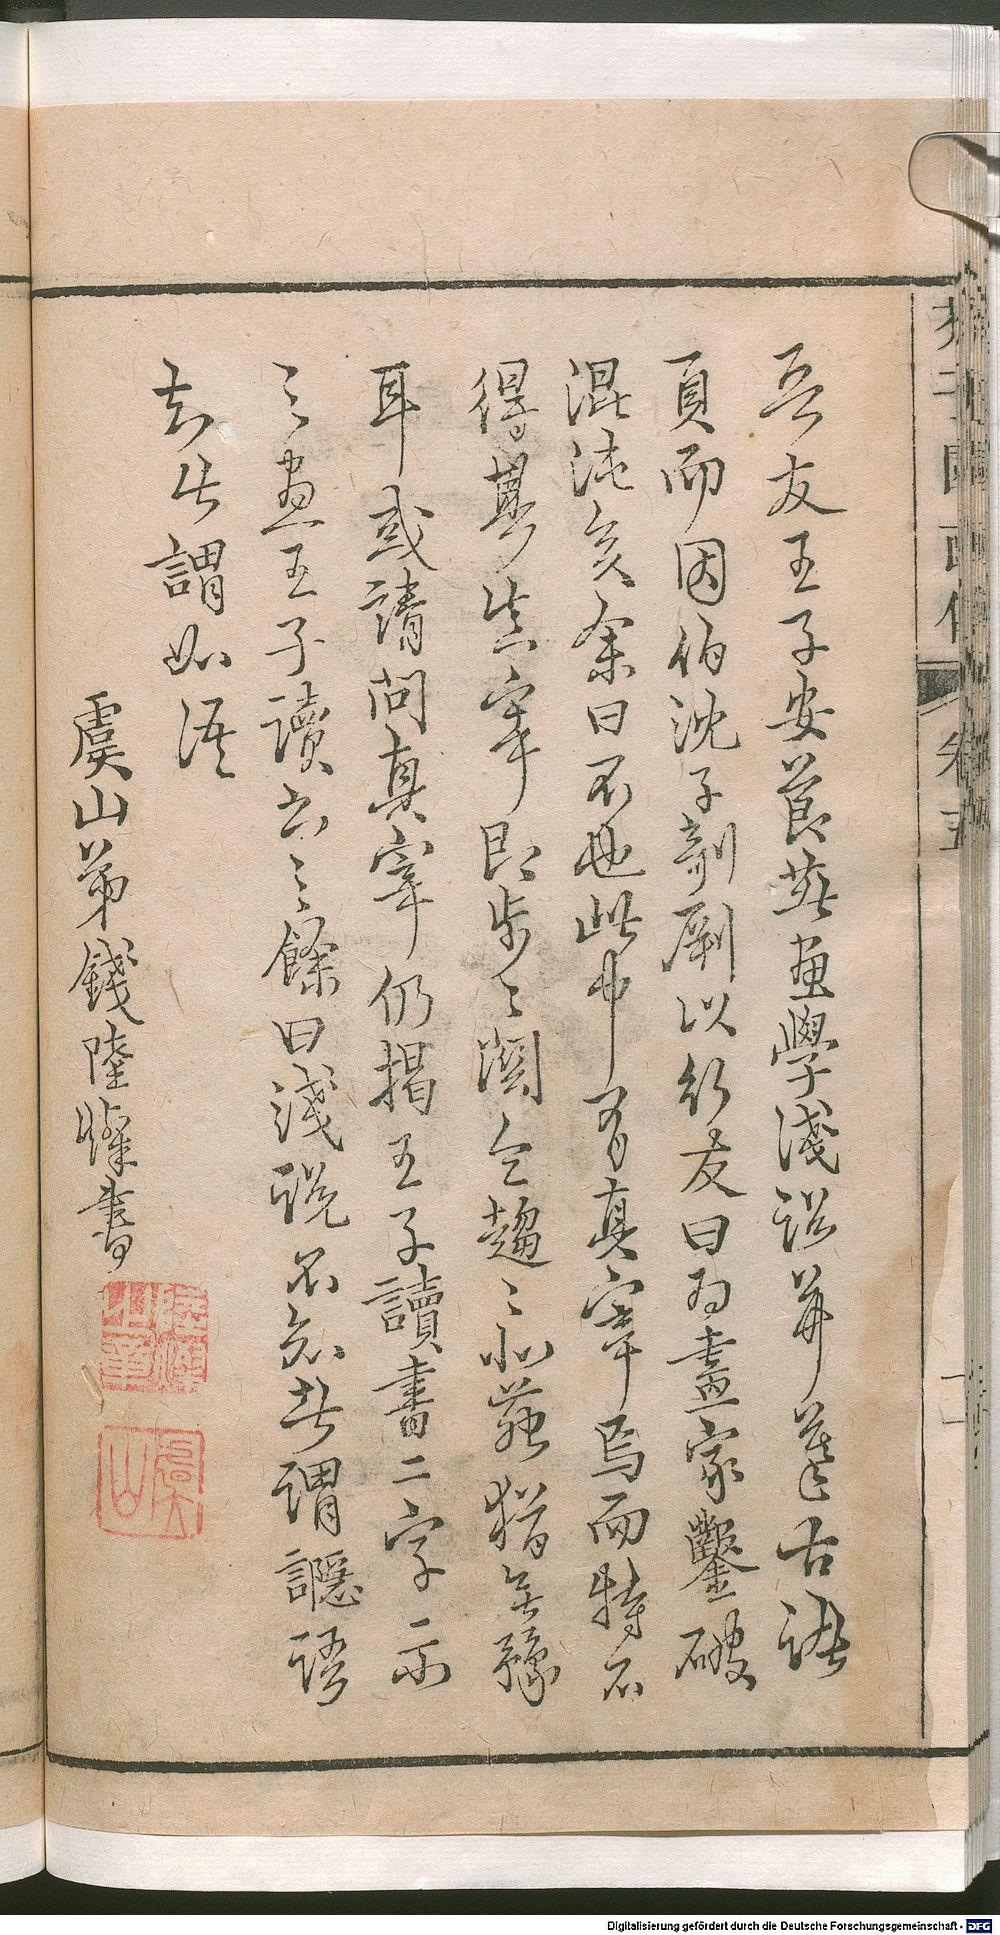 吾友王子安節燕畫學淺說並摹古諸
頁而因伯沈子剞劂以行友曰為畫家鑿破
混沌矣余曰不也此中有真宰焉而特不
得其真宰即步之關仝趨之北苑猶無緣
耳或請問真宰仍揭王子讀書二字示
之畫王子讀書之餘曰淺說不知者謂讔語
知者謂如語
虞山弟錢陸燦書
虞山
卷五
Digitalisierung gefördert durch die Deutsche Forschungsgemeinschaft - DFG